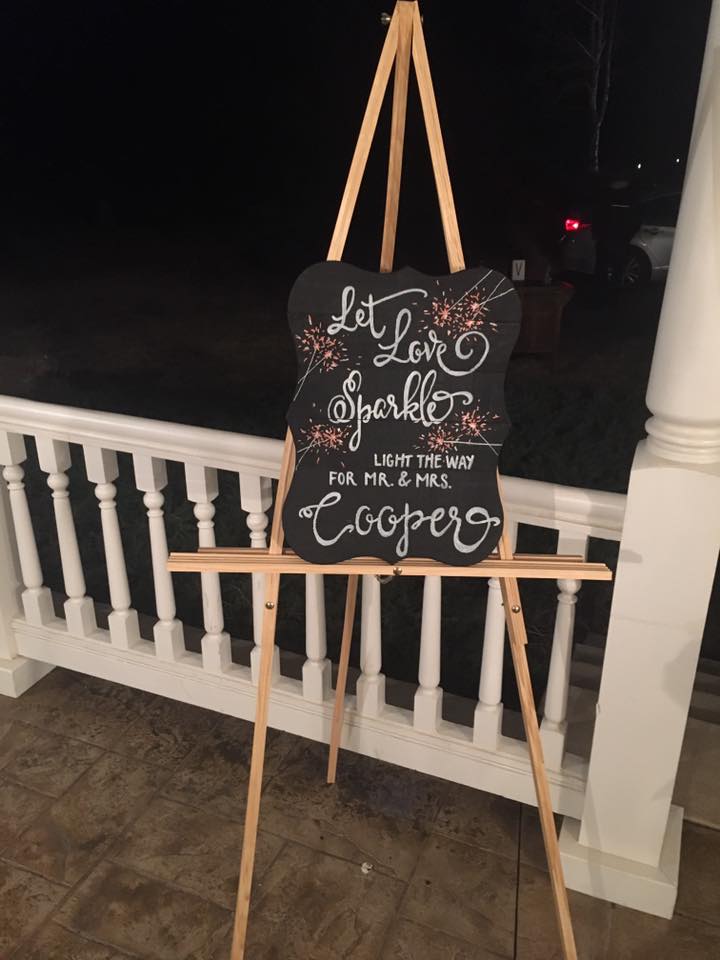 Let
Love
Sparkle
LIGHT THE WAY
FOR MR. & MRS.
Cooper
V